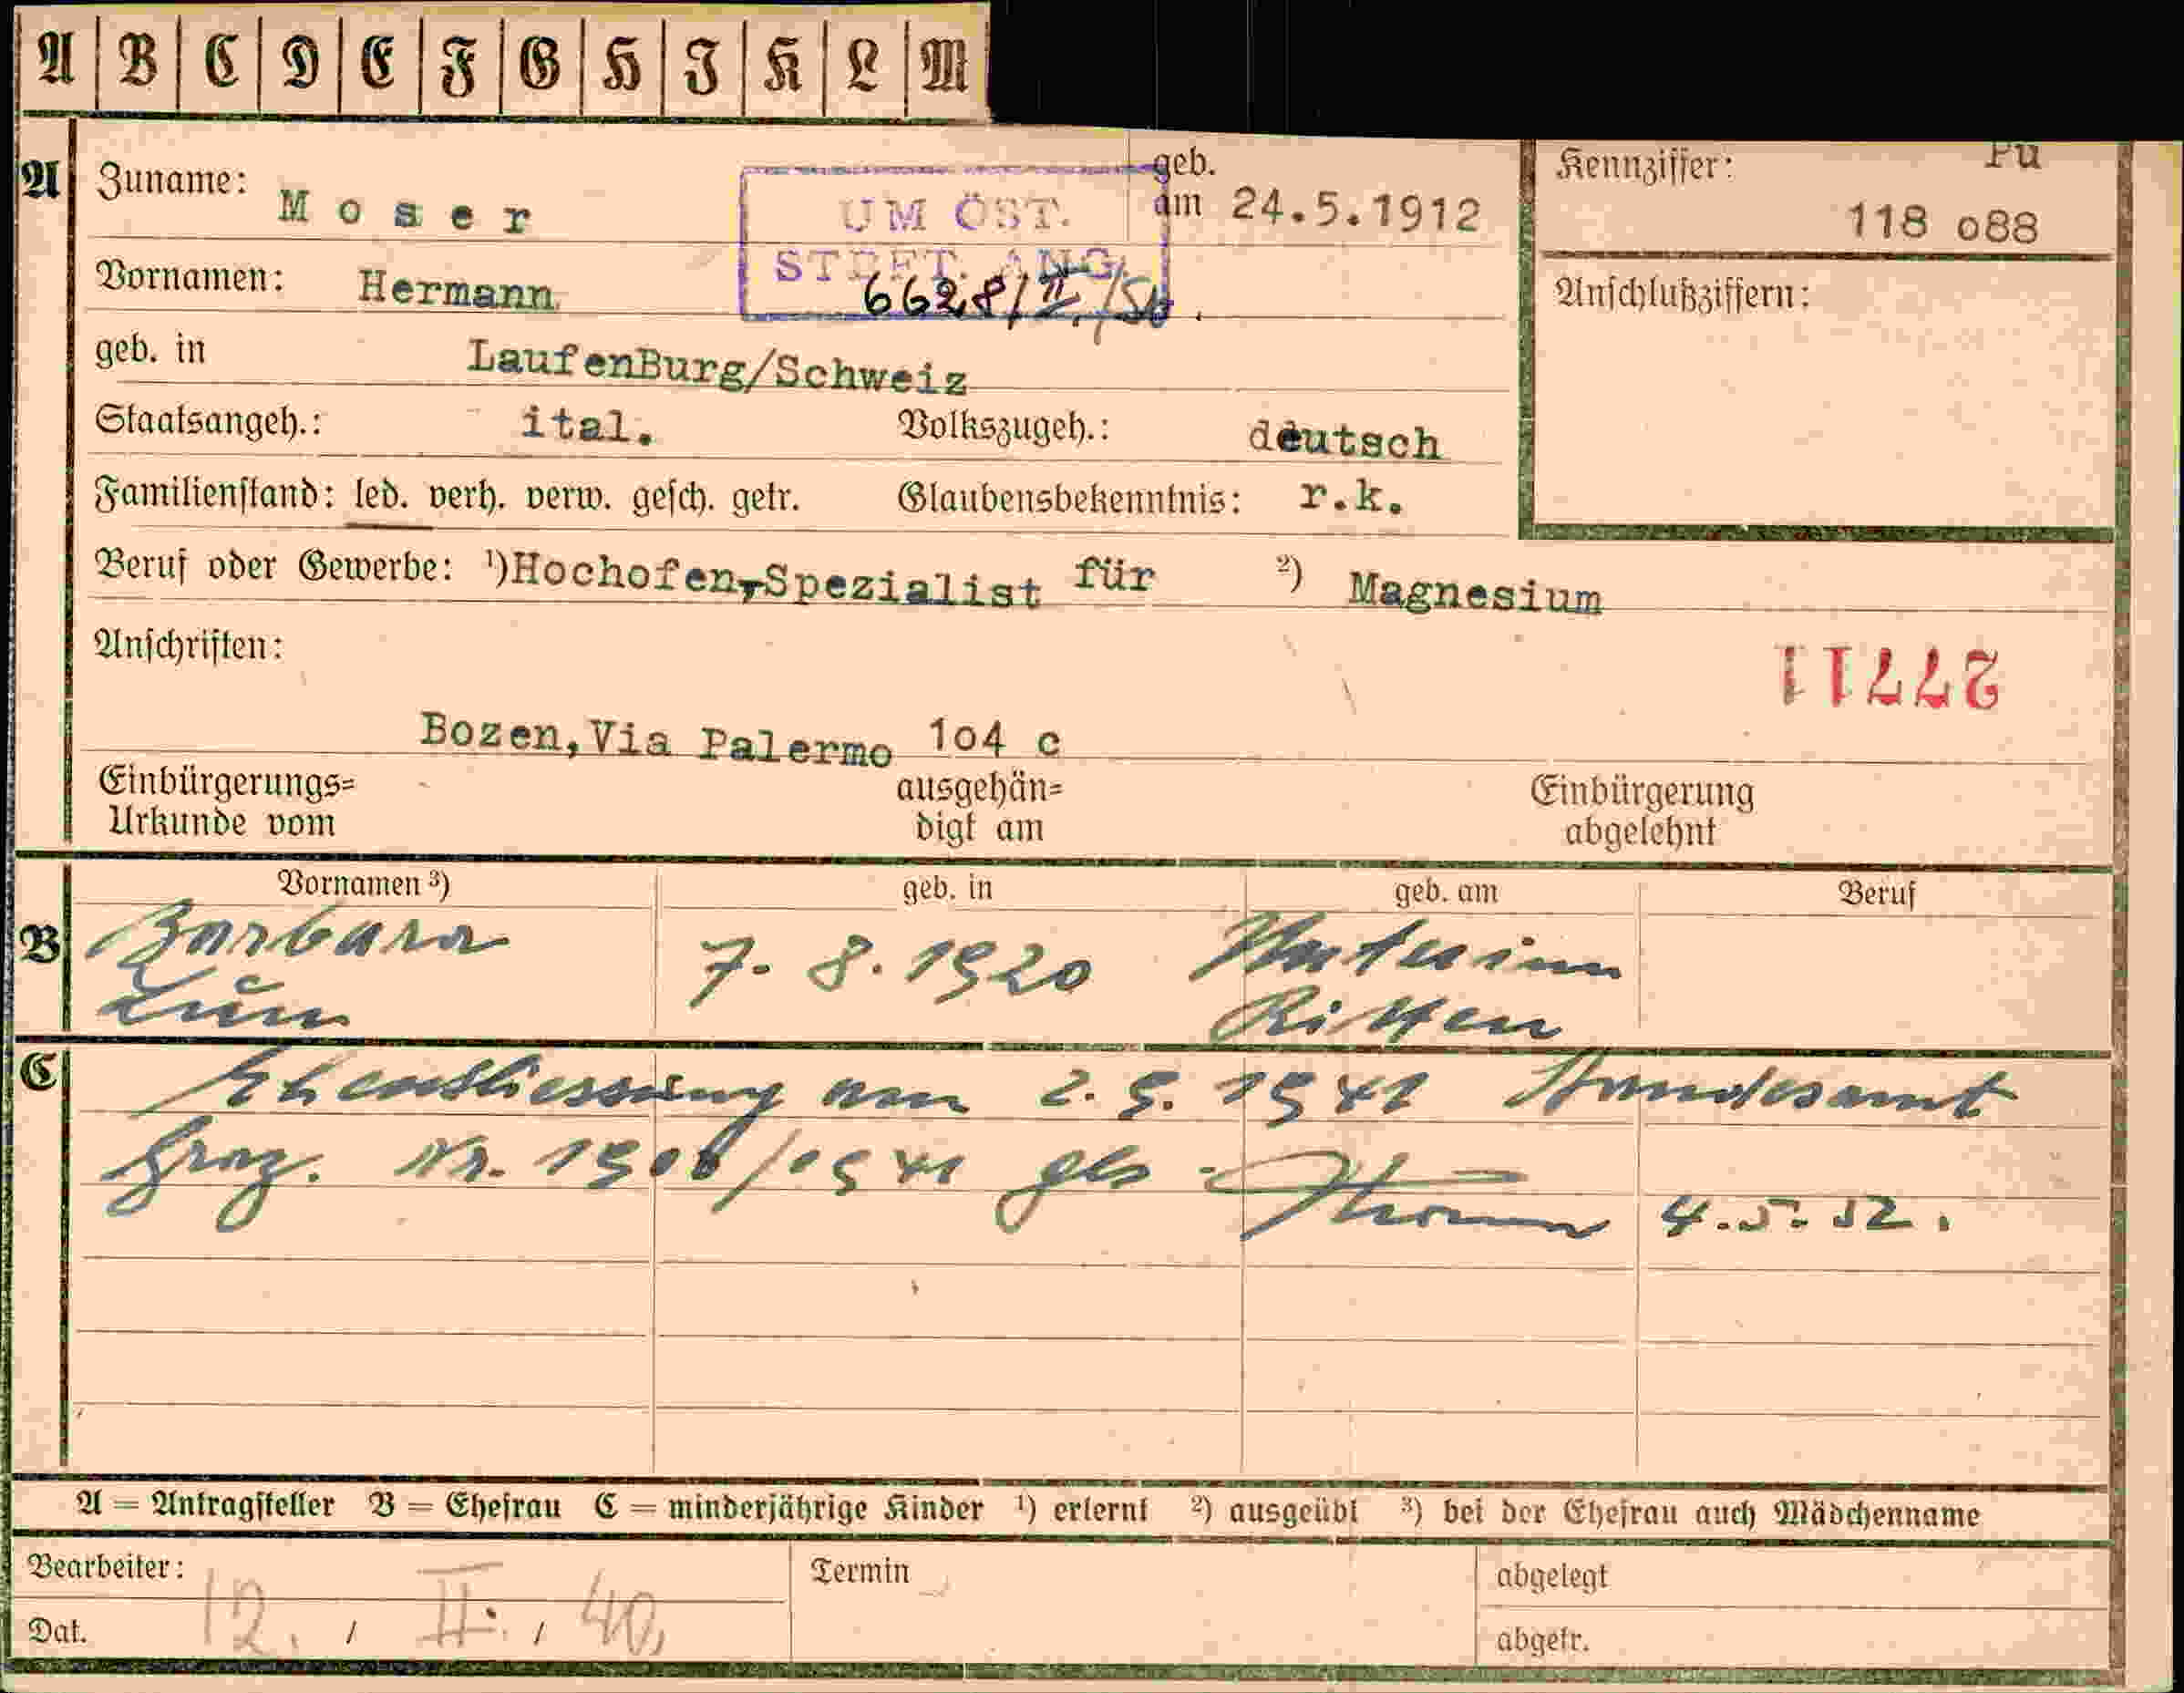 A B C D E F G H I K L M
A Zuname: Moser geb. am 24.5.1912
UM ÖST.
STBFT. ANG.
6628/II/50.
Kennziffer: Pu
118 o88
Vornamen: Hermann
Anschlußziffern:
geb. in LaufenBurg/Schweiz
Staatsangeh.: ital. Volkszugeh.: deutsch
Familienstand: led. verh. verw. gesch. getr. Glaubensbekenntnis: r.k.
Beruf oder Gewerbe: ¹) Hochofen-Spezialist für ²) Magnesium
Anschriften:
27711
Bozen, Via Palermo 1o4 c
Einbürgerungs= ausgehän= Einbürgerung
Urkunde vom digt am abgelehnt
Vornamen ³) geb. in geb. am Beruf
B Barbara 7. 8. 1920 Unterinn
Ritten
C Eheschliessung am 2. 1941 Standesamt
Graz. Nr. 4.5.52.
A = Antragsteller B = Ehefrau C = minderjährige Kinder ¹) erlernt ²) ausgeübt ³) bei der Ehefrau auch Mädchenname
Bearbeiter: Termin abgelegt
Dat. 12. / II. / 40, abgetr.